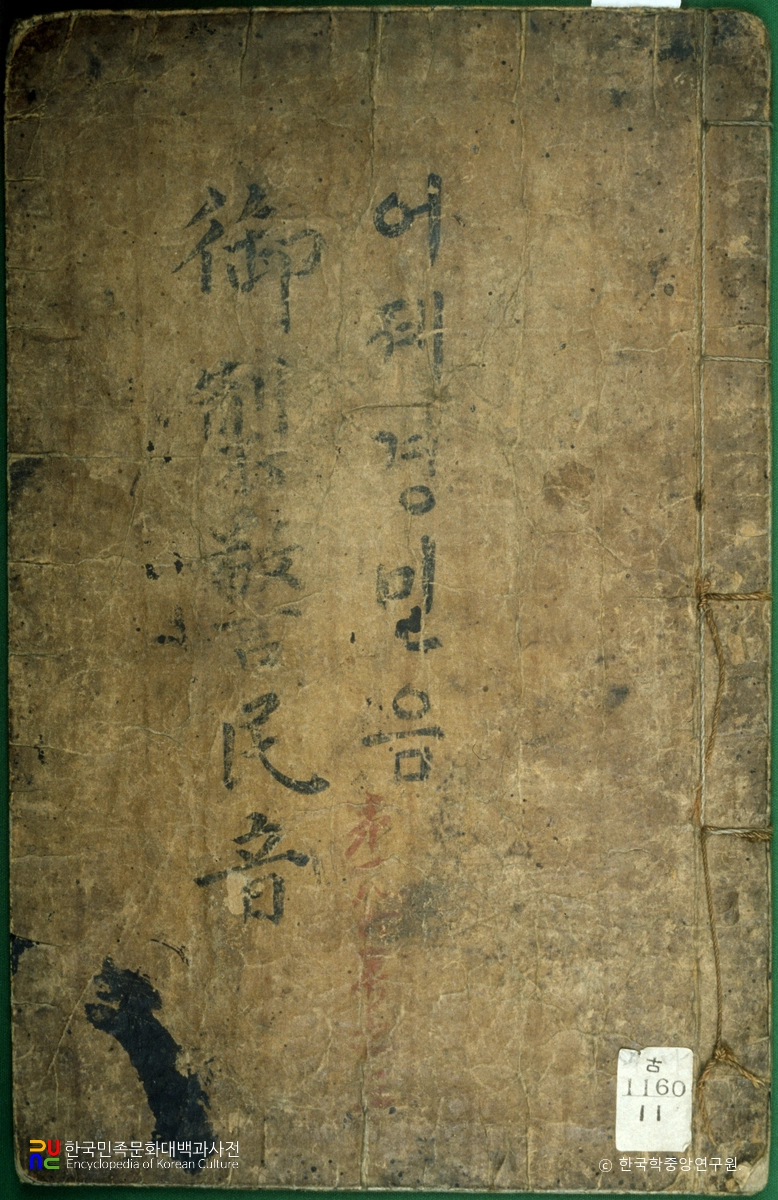 어제경민음
御製警民音
古
1160
11
한국민족문화대백과사전
Encyclopedia of Korean Culture
© 한국학중앙연구원